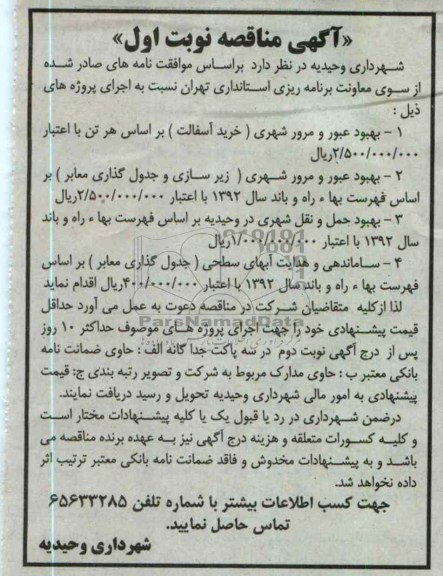 «آگهی مناقصه نوبت اول»
شهرداری وحیدیه در نظر دارد براساس موافقت نامه های صادر شده
از سوی معاونت برنامه ریزی استانداری تهران نسبت به اجرای پروژه های
ذیل :
۱ – بهبود عبور و مرور شهری ( خرید آسفالت ) بر اساس هر تن با اعتبار
۲/۵۰۰/۰۰۰/۰۰۰ریال
۲ – بهبود عبور و مرور شهری ( زیر سازی و جدول گذاری معابر ) بر
اساس فهرست بها ء راه و باند سال ۱۳۹۲ با اعتبار ۲/۵۰۰/۰۰۰/۰۰۰ریال
۳ – بهبود حمل و نقل شهری در وحیدیه بر اساس فهرست بها ء راه و باند
سال ۱۳۹۲ با اعتبار ۱/۰۰۰/۰۰۰/۰۰۰ریال
۴ – ساماندهی و هدایت آبهای سطحی ( جدول گذاری معابر ) بر اساس
فهرست بها ء راه و باند سال ۱۳۹۲ با اعتبار ۴۰۰/۰۰۰/۰۰۰ریال اقدام نماید
لذا ازکلیه متقاضیان شرکت در مناقصه دعوت به عمل می آورد حداقل
قیمت پیشنهادی خود را جهت اجرای پروژه های موصوف حداکثر ۱۰ روز
پس از درج آگهی نوبت دوم در سه پاکت جدا گانه الف : حاوی ضمانت نامه
بانکی معتبر ب : حاوی مدارک مربوط به شرکت و تصویر رتبه بندی ج: قیمت
پیشنهادی به امور مالی شهرداری وحیدیه تحویل و رسید دریافت نمایند.
درضمن شهرداری در رد یا قبول یک یا کلیه پیشنهادات مختار است
و کلیه کسورات متعلقه و هزینه درج آگهی نیز به عهده برنده مناقصه می
باشد و به پیشنهادات مخدوش و فاقد ضمانت نامه بانکی معتبر ترتیب اثر
داده نخواهد شد.
جهت کسب اطلاعات بیشتر با شماره تلفن ۶۵۶۳۳۲۸۵
تماس حاصل نمایید.
شهرداری وحیدیه
ParsNamadData